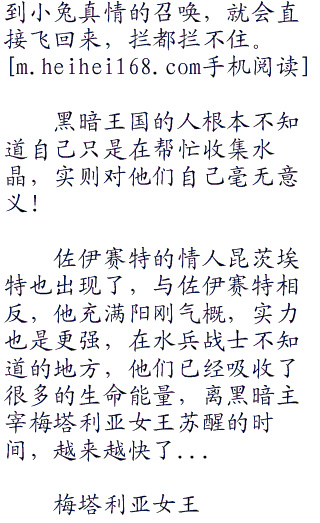 到小兔真情的召唤，就会直
接飞回来，拦都拦不住。
[m.heihei168.com手机阅读]
黑暗王国的人根本不知
道自己只是在帮忙收集水
晶，实则对他们自己毫无意
义！
佐伊赛特的情人昆茨埃
特也出现了，与佐伊赛特相
反，他充满阳刚气概，实力
也是更强，在水兵战士不知
道的地方，他们已经吸收了
很多的生命能量，离黑暗主
宰梅塔利亚女王苏醒的时
间，越来越快了...
梅塔利亚女王